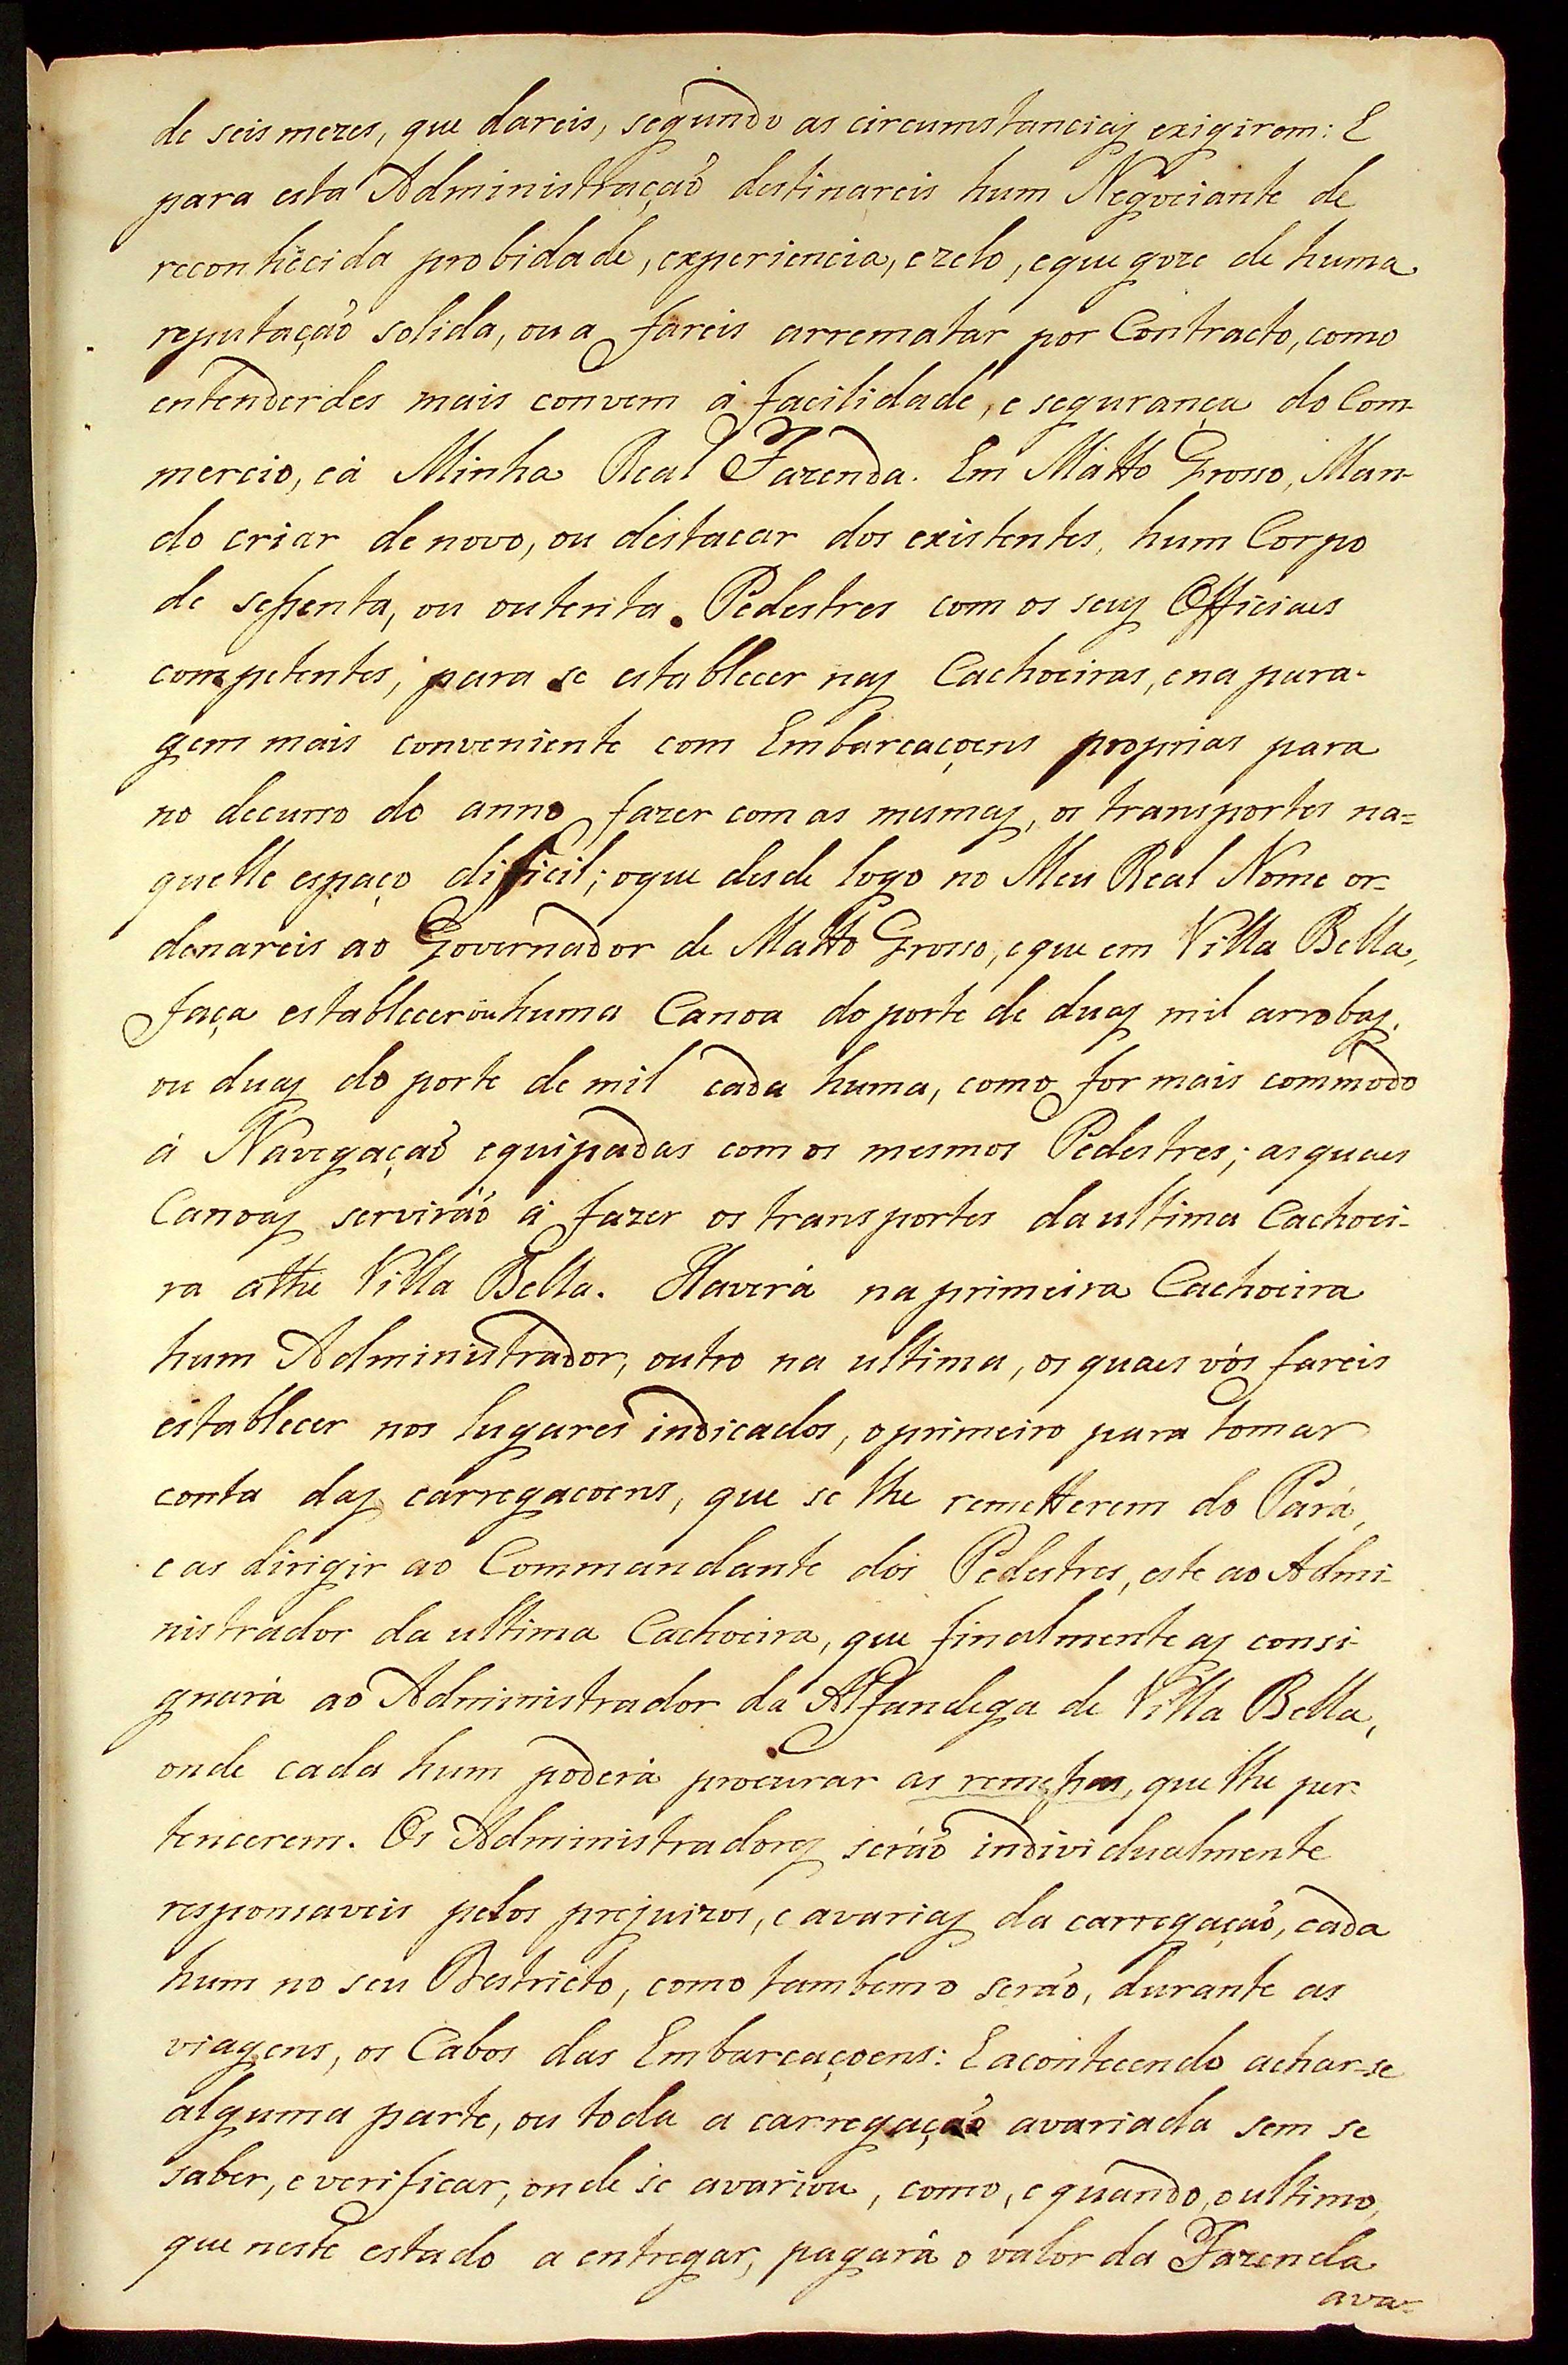 de seis mezes, que dareis, segundo as circumstancias exigirem: E
para esta Administração destinareis hum Negociante de
reconhecida probidade, experiencia, e zelo, e que goze de huma
reputação solida, ou a fareis arrematar por Contracto, como
entenderdes mais convem á facilidade, e segurança do Com-
mercio, e á Minha Real Fazenda. Em Matto Grosso, Man-
do criar de novo, ou destacar dos existentes, hum Corpo
de sessenta, ou outenta Pedestres com os seus Officiaes
competentes, para se establecer nas Cachoeiras, e na para-
gem mais conveniente com Embarcaçoens proprias para
no decurso do anno fazer com as mesmas, os transportes na=
quelle espaço dificil; o que desde logo no Meu Real Nome or-
denareis ao Governador de Matto Grosso, e que em Villa Bella,
faça establecer ou huma Canoa do porte de duas mil arrobas,
ou duas do porte de mil cada huma, como for mais commodo
á Navegação equipadas com os mesmos Pedestres; as quaes
Canoas servirão á fazer os transportes da ultima Cachoei-
ra athe Villa Bella. Haverá na primeira Cachoeira
hum Administrador, outro na ultima, os quaes vós fareis
establecer nos lugares indicados, o primeiro para tomar
conta das carregacoens, que se lhe remetterem do Pará,
e as dirigir ao Commandante dos Pedestres, este ao Admi-
nistrador da ultima Cachoeira, que finalmente as consi-
gnará ao Administrador da Alfandega de Villa Bella,
onde cada hum poderá procurar as remessas, que lhe per-
tencerem. Os Administradores serão individualmente
responsaveis pelos prejuizos, e avarias da carregação, cada
hum no seu Destricto, como tambem o serão, durante as
viagens, os Cabos das Embarcaçoens: E acontecendo achar-se
alguma parte, ou toda a carregação avariada sem se
saber, e verificar, onde se avariou, como, e quando, o ultimo,
que neste estado a entregar, pagará o valor da Fazenda
ava=